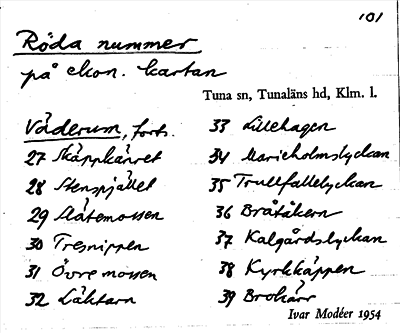 101
Röda nummer
på ekon. kartan
Tuna sn, Tunaläns hd, Klm. l.
Väderum, forts.
27 Skäppkärret
28 Stenspjället
29 Slåtemossen
30 Tresnippen
31 Övre mossen
32 Läktarn
33 Lillehagen
34 Marieholmslyckan
35 Trullfallelyckan
36 Bråtåkern
37 Kalgårdslyckan
38 Kyrkkäppen
39 Brokärr
Ivar Modéer 1954